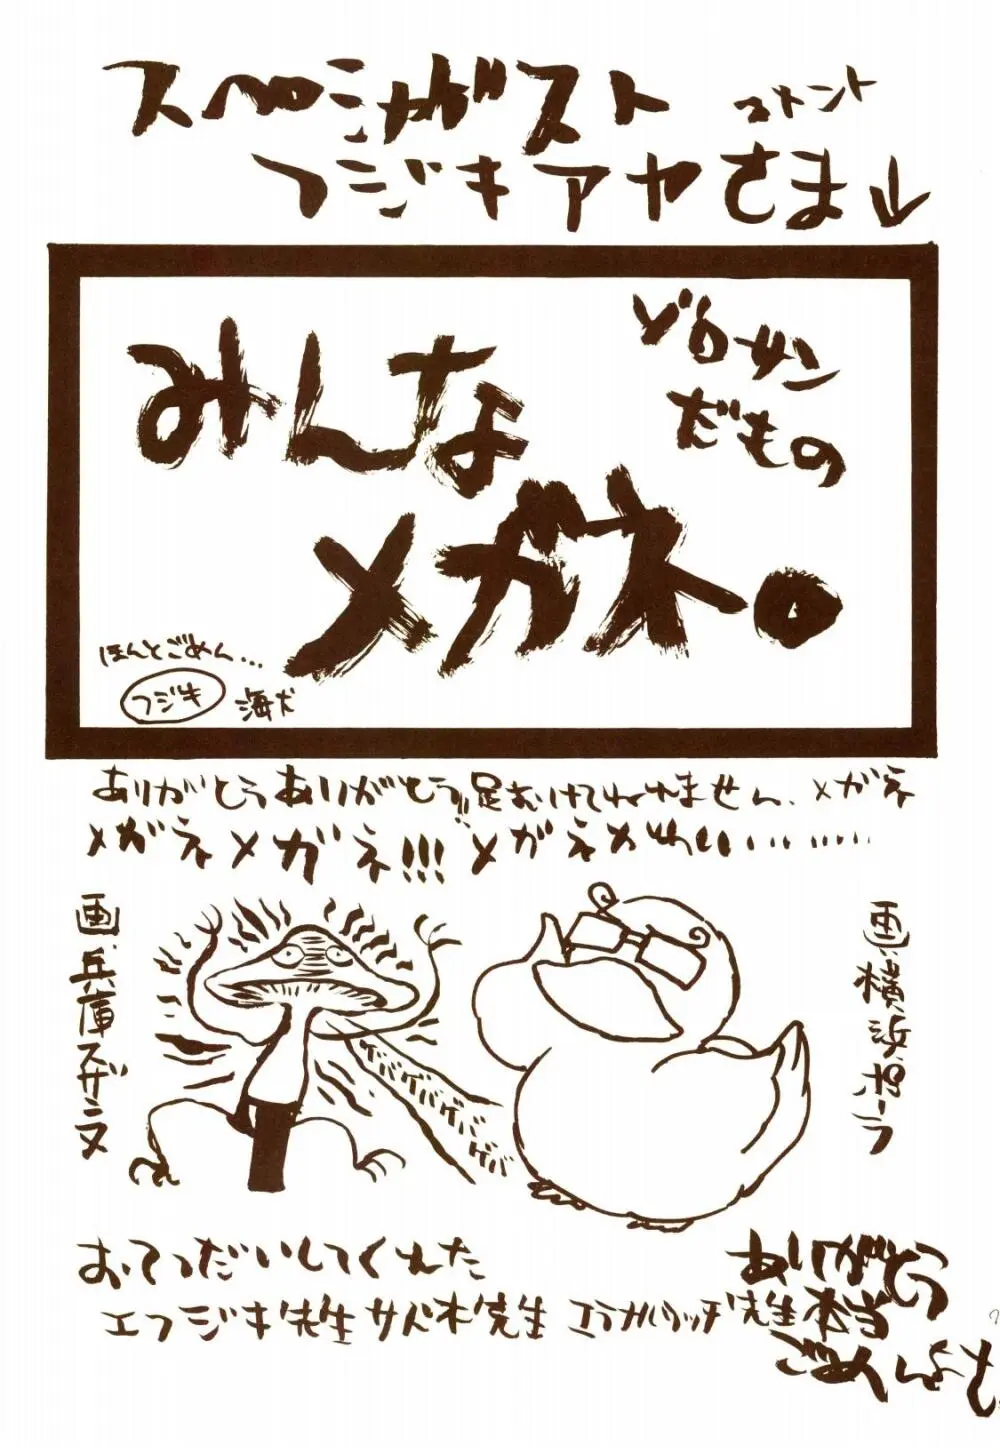 スペシャルゲスト コメント
フジキアヤさま↓
ゾロサン
だもの
みんな
メガネ。
ほんとごめん…
フジキ 海犬
ありがとうありがとう!!足むけてねれません、メガネ
メガネメガネ!!!メガネかわい…………
画、兵庫スザンヌ
画、横浜ポーラ
ゲバゲバゲバゲバゲバ
おてつだいしてくれた
エフジキ先生サバ木先生
先生
ありがとう
本当
ごめんよも